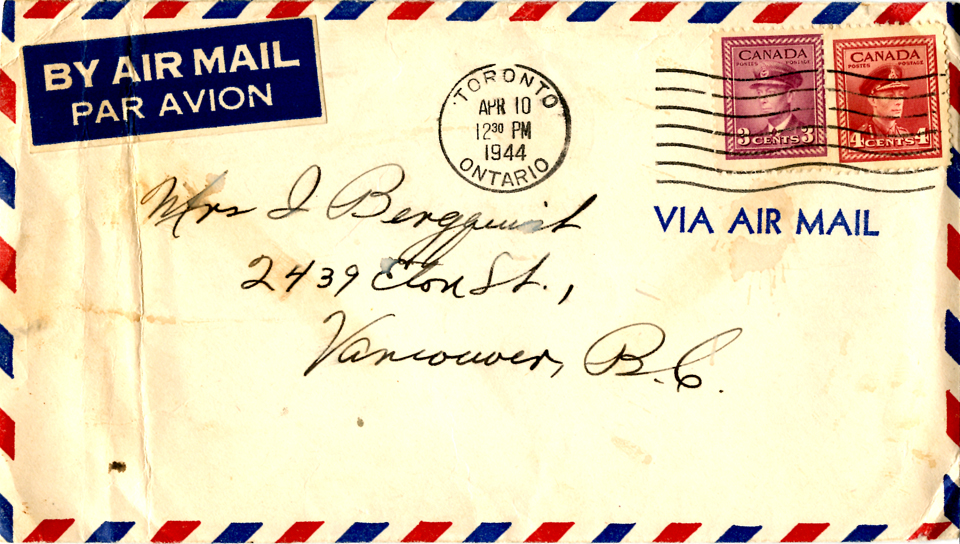 BY AIR MAIL
PAR AVION
TORONTO
APR 10
12³⁰ PM
1944
ONTARIO
CANADA
POSTES POSTAGE
3 CENTS 3
CANADA
POSTES POSTAGE
4 CENTS 4
VIA AIR MAIL
Mrs J Bergquist
2439 Eton St.,
Vancouver, B.C.